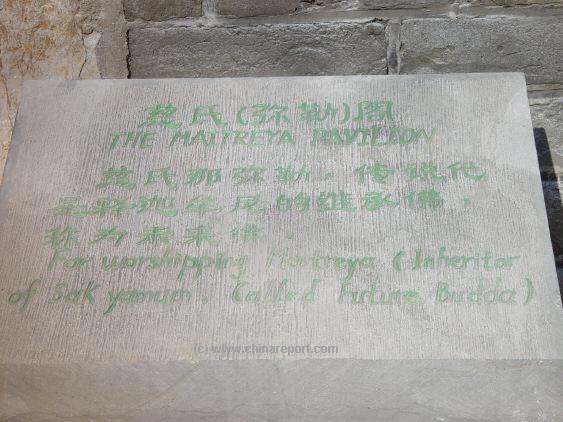 慈氏(弥勒)阁
THE MAITREYA PAVILION
慈氏那弥勒,传说代
是释迦牟尼的继承佛,
称为未来佛。
For worshipping Maitreya (Inheritor
of Sakyamuni. Called Future Budda)
(c) www.chinareport.com